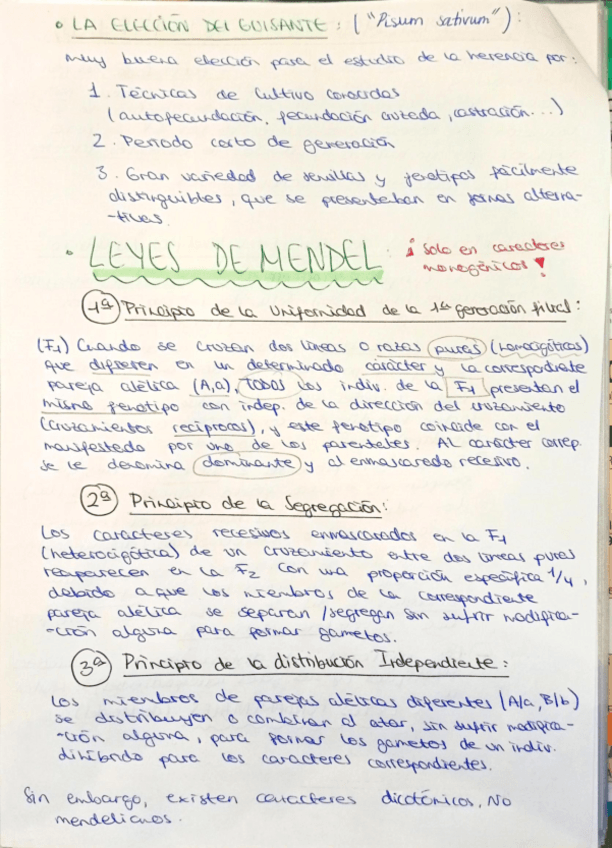 • LA ELECCIÓN DEL GUISANTE: ("Pisum sativum"):
Muy buena elección para el estudio de la herencia por:
1. Técnicas de cultivo conocidas
(autofecundación, fecundación cruzada, castración...)
2. Periodo corto de generación
3. Gran variedad de semillas y fenotipos fácilmente
distinguibles, que se presentaban en formas alterna-
-tivas.
• LEYES DE MENDEL:
¡Solo en caracteres
monogénicos!
1ª Principio de la Uniformidad de la 1ª generación filial:
(F1) Cuando se cruzan dos líneas o razas puras (homocigóticas)
que difieren en un determinado carácter y la correspondiente
pareja alélica (A,a), todos los indiv. de la F1 presentan el
mismo fenotipo con indep. de la dirección del cruzamiento
(cruzamientos recíprocos), y este fenotipo coincide con el
manifestado por uno de los parentales. Al carácter corresp.
se le denomina dominante y al enmascarado recesivo.
2ª Principio de la Segregación:
Los caracteres recesivos enmascarados en la F1
(heterocigótica) de un cruzamiento entre dos líneas puras
reaparecen en la F2 con una proporción específica 1/4,
debido a que los miembros de la correspondiente
pareja alélica se separan/segregan sin sufrir modifica-
-ción alguna para formar gametos.
3ª Principio de la distribución Independiente:
Los miembros de parejas alélicas diferentes (A/a, B/b)
se distribuyen o combinan al azar, sin sufrir modifica-
-ción alguna, para formar los gametos de un indiv.
dihíbrido para los caracteres correspondientes.
Sin embargo, existen caracteres dicotómicos, No
mendelianos.